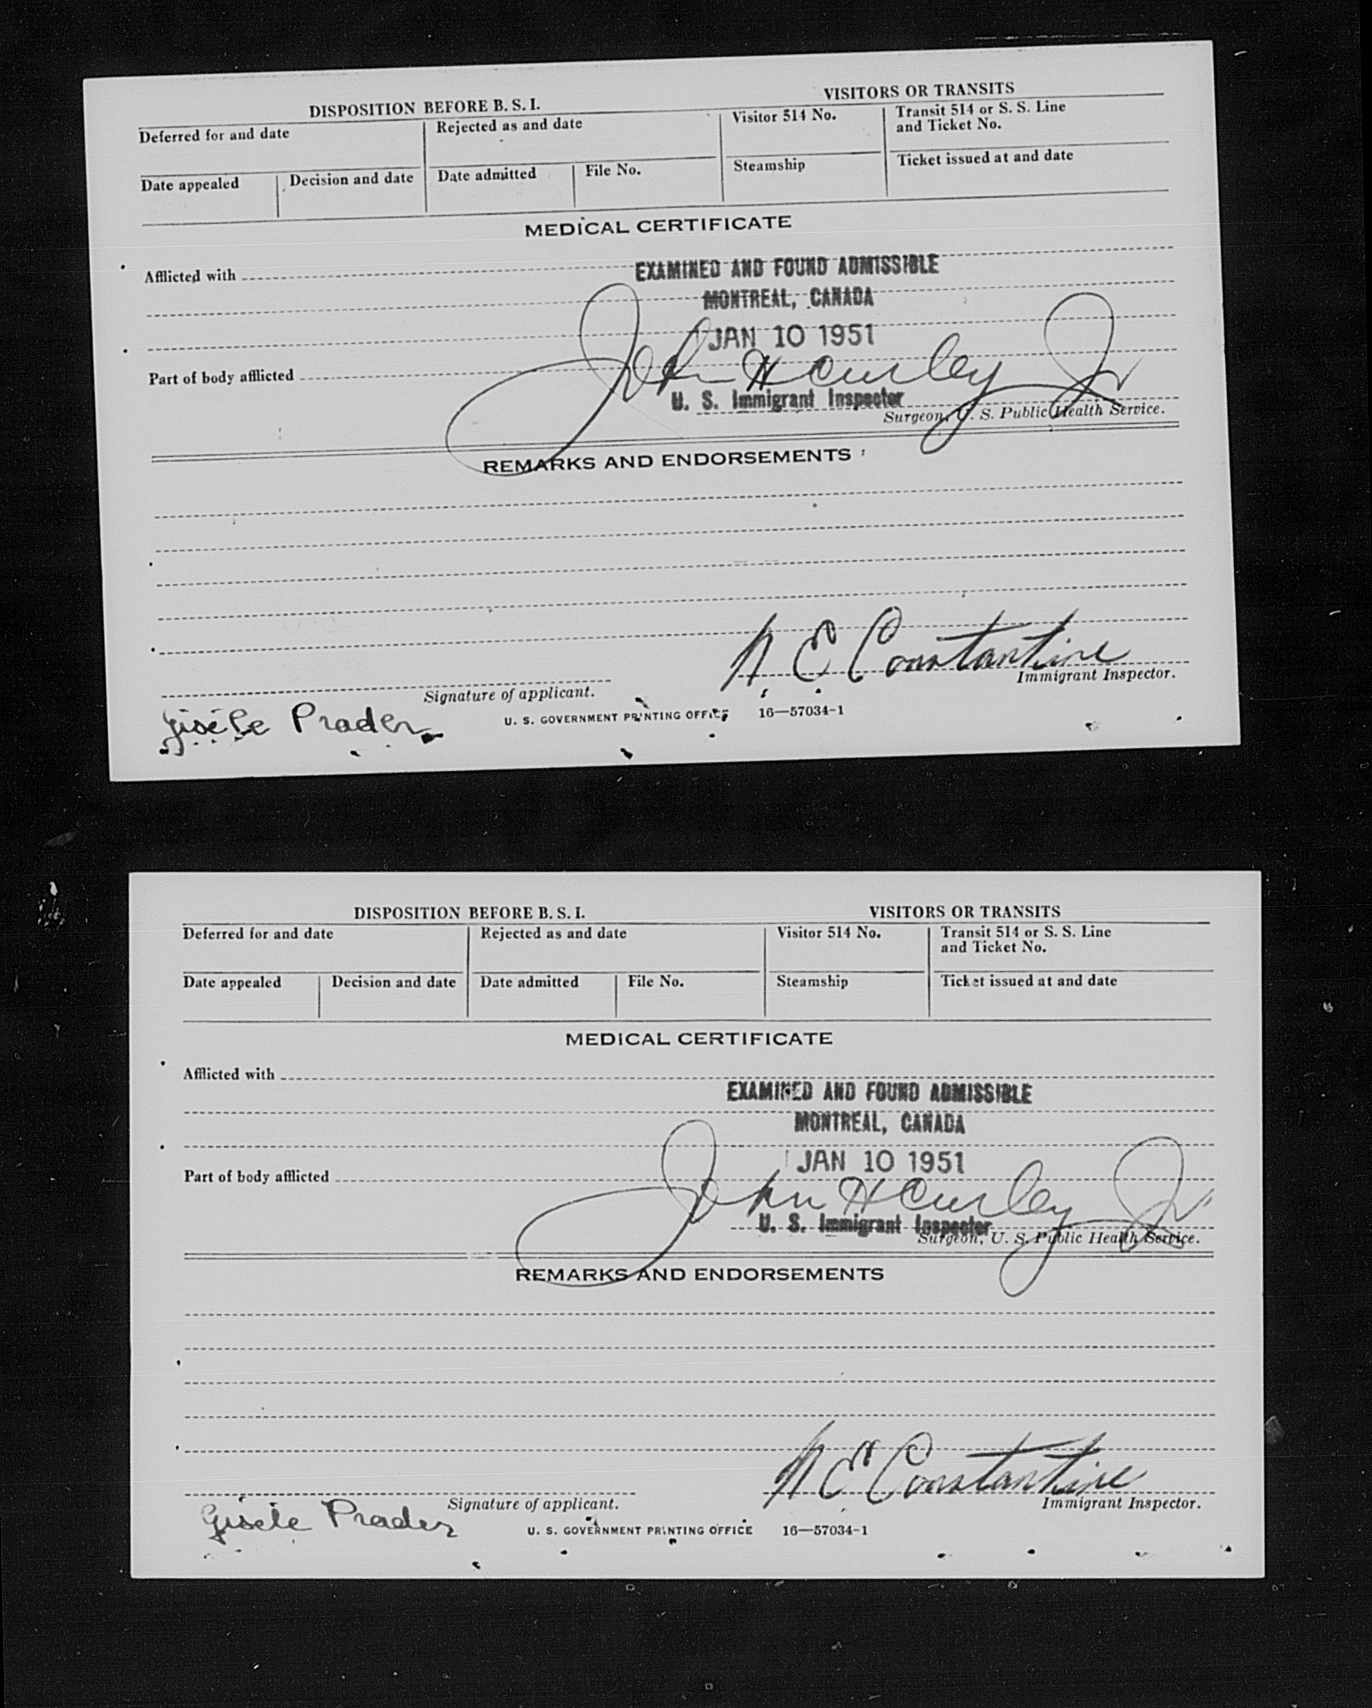 DISPOSITION BEFORE B. S. I.
VISITORS OR TRANSITS
Deferred for and date
Rejected as and date
Visitor 514 No.
Transit 514 or S. S. Line
and Ticket No.
Date appealed
Decision and date
Date admitted
File No.
Steamship
Ticket issued at and date
MEDICAL CERTIFICATE
Afflicted with
EXAMINED AND FOUND ADMISSIBLE
MONTREAL, CANADA
JAN 10 1951
John H Curley Jr
Part of body afflicted
U. S. Immigrant Inspector
Surgeon, U. S. Public Health Service.
REMARKS AND ENDORSEMENTS
N E Constantine
Signature of applicant.
Immigrant Inspector.
Gisèle Prader
U. S. GOVERNMENT PRINTING OFFICE 16—57034-1
DISPOSITION BEFORE B. S. I.
VISITORS OR TRANSITS
Deferred for and date
Rejected as and date
Visitor 514 No.
Transit 514 or S. S. Line
and Ticket No.
Date appealed
Decision and date
Date admitted
File No.
Steamship
Ticket issued at and date
MEDICAL CERTIFICATE
Afflicted with
EXAMINED AND FOUND ADMISSIBLE
MONTREAL, CANADA
JAN 10 1951
Part of body afflicted
John H Curley Jr
U. S. Immigrant Inspector
Surgeon, U. S. Public Health Service.
REMARKS AND ENDORSEMENTS
N E Constantine
Signature of applicant.
Immigrant Inspector.
Gisèle Prader
U. S. GOVERNMENT PRINTING OFFICE 16—57034-1